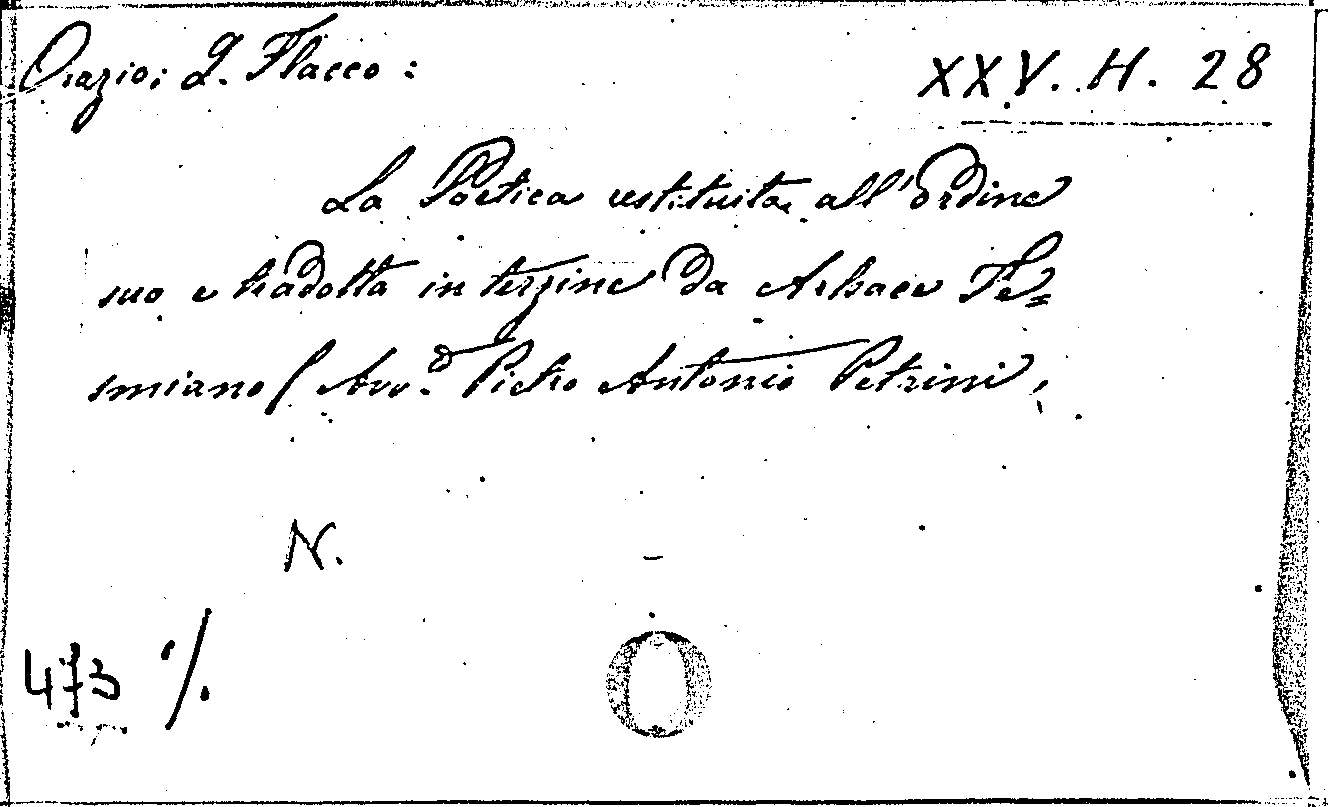 Orazio; Q. Flacco:
XXV. H. 28
La Poetica restituita all'ordine
suo e tradotta in terzine da Arbace Te=
smiano (Avv.o Pietro Antonio Petrini,
N.
473 ·/.